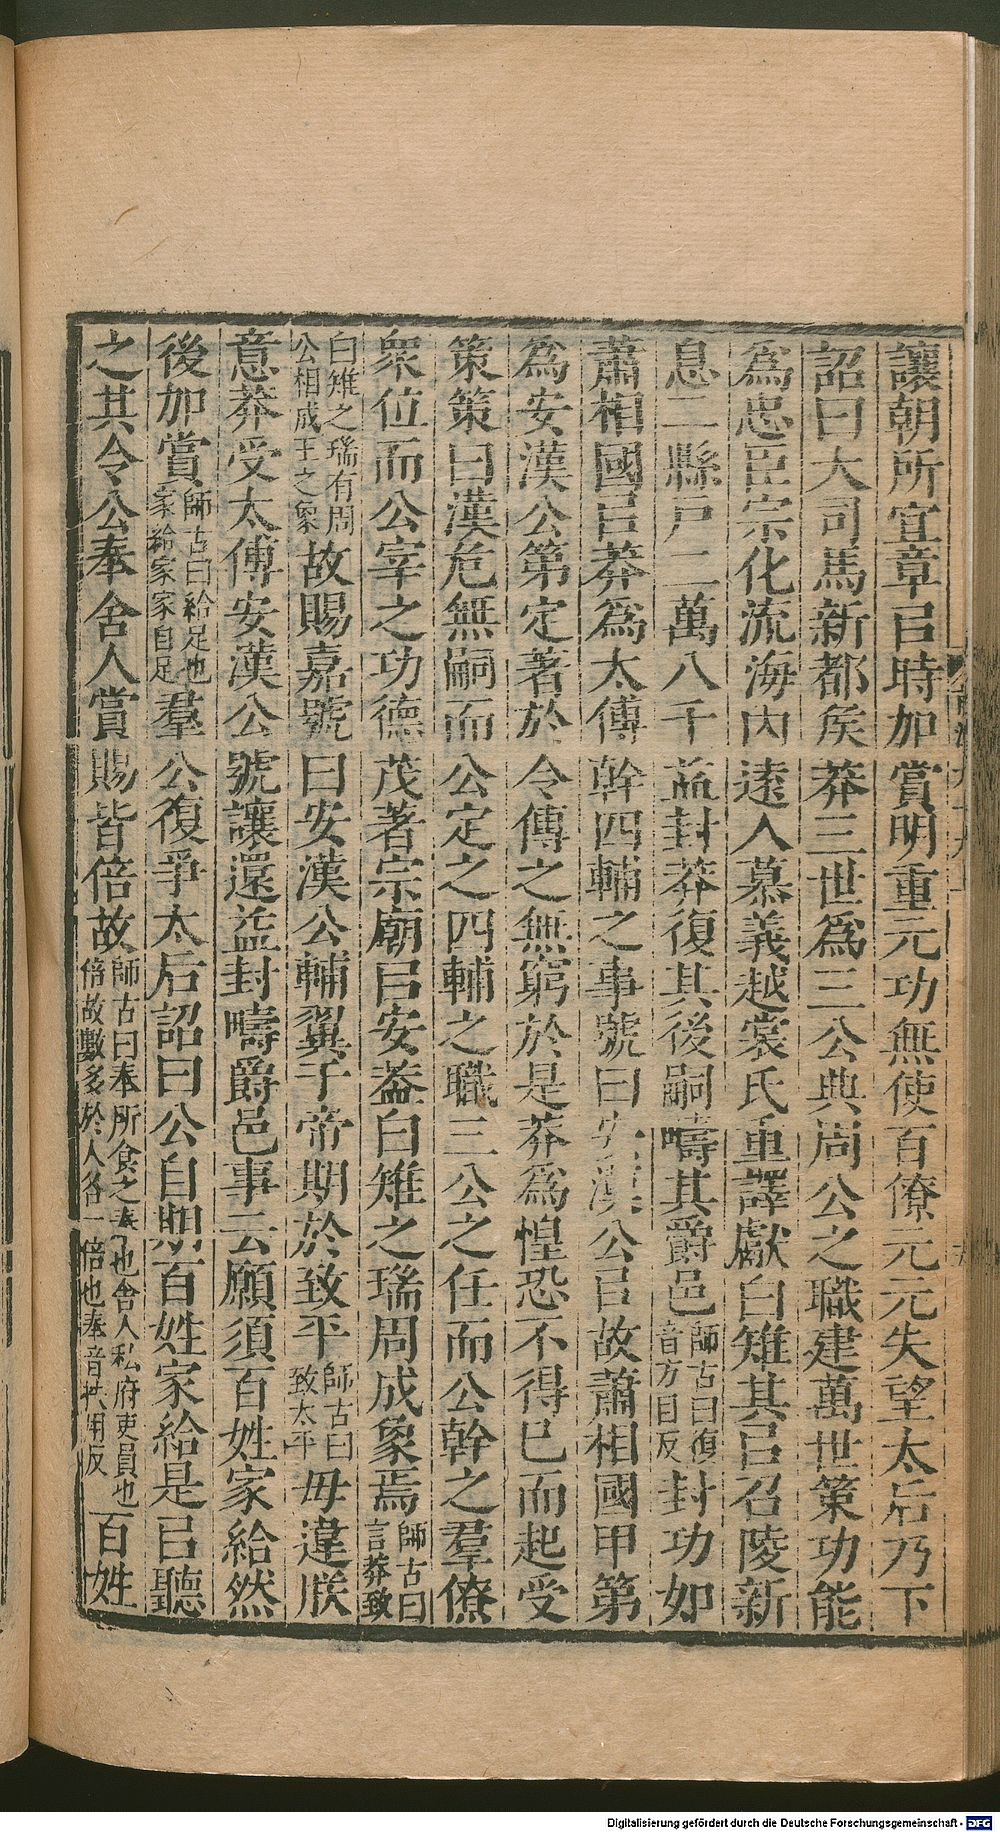 讓朝所宜章㠯時加賞明重元功無使百僚元元失望太后乃下
詔曰大司馬新都矦莽三世爲三公典周公之職建萬世策功能
爲忠臣宗化流海内遠人慕義越裳氏重譯獻白雉其㠯召陵新
息二縣戸二萬八千益封莽復其後嗣疇其爵邑師古曰復音方目反封功如
蕭相國㠯莽爲太傅幹四輔之事號曰安漢公㠯故蕭相國甲第
爲安漢公第定著於令傳之無窮於是莽爲惶恐不得已而起受
策策曰漢危無嗣而公定之四輔之職三公之任而公幹之羣僚
衆位而公宰之功德茂著宗廟㠯安葢白雉之瑞周成象焉師古曰言莽致
白雉之瑞有周公相成王之象故賜嘉號曰安漢公輔翼于帝期於致平師古曰致太平毋違朕
意莽受太傅安漢公號讓還益封疇爵邑事云願須百姓家給然
後加賞師古曰給足也家給家家自足羣公復爭太后詔曰公自期百姓家給是㠯聽
之其令公奉舍人賞賜皆倍故師古曰奉所食之奉也舍人私府吏員也倍故數多於人各一倍也奉音扶用反百姓
Digitalisierung gefördert durch die Deutsche Forschungsgemeinschaft - DFG